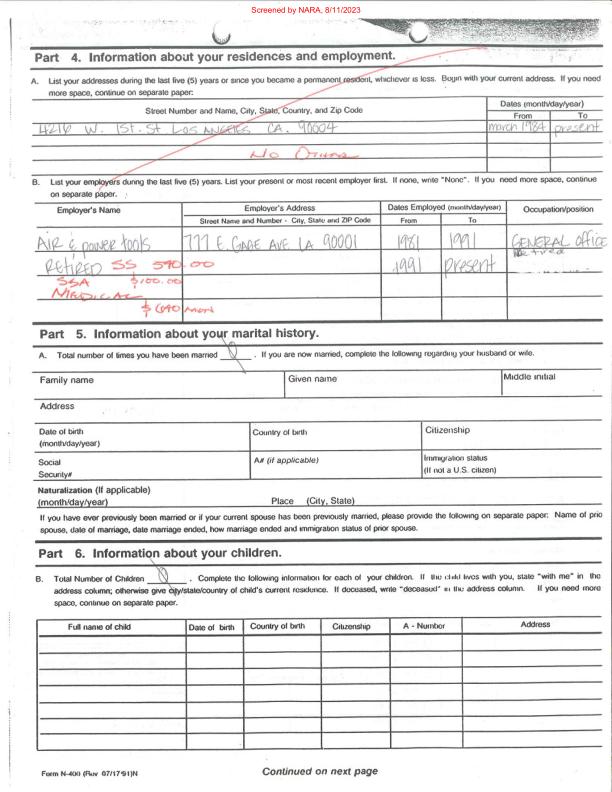 Screened by NARA, 8/11/2023
Part 4. Information about your residences and employment.
A. List your addresses during the last five (5) years or since you became a permanent resident, whichever is less. Begin with your current address. If you need
more space, continue on separate paper:
Street Number and Name, City, State, Country, and Zip Code
Dates (month/day/year)
From To
4216 W. 1st. St LOS ANGELES CA. 90004 March 1984 present
No Other
B. List your employers during the last five (5) years. List your present or most recent employer first. If none, write "None". If you need more space, continue
on separate paper.
Employer's Name Employer's Address Dates Employed (month/day/year) Occupation/position
Street Name and Number - City, State and ZIP Code From To
AIR & power tools 777 E. GAGE AVE LA 90001 1981 1991 GENERAL office
RETIRED SS 590.00 1991 present Retired
SSA $100.00
MEDICAL
$690 mon
Part 5. Information about your marital history.
A. Total number of times you have been married 0 . If you are now married, complete the following regarding your husband or wife.
Family name Given name Middle initial
Address
Date of birth Country of birth Citizenship
(month/day/year)
Social A# (if applicable) Immigration status
Security# (If not a U.S. citizen)
Naturalization (If applicable)
(month/day/year) Place (City, State)
If you have ever previously been married or if your current spouse has been previously married, please provide the following on separate paper: Name of prior
spouse, date of marriage, date marriage ended, how marriage ended and immigration status of prior spouse.
Part 6. Information about your children.
B. Total Number of Children 0 . Complete the following information for each of your children. If the child lives with you, state "with me" in the
address column; otherwise give city/state/country of child's current residence. If deceased, write "deceased" in the address column. If you need more
space, continue on separate paper.
Full name of child Date of birth Country of birth Citizenship A - Number Address
Form N-400 (Rev 07/17/91)N Continued on next page